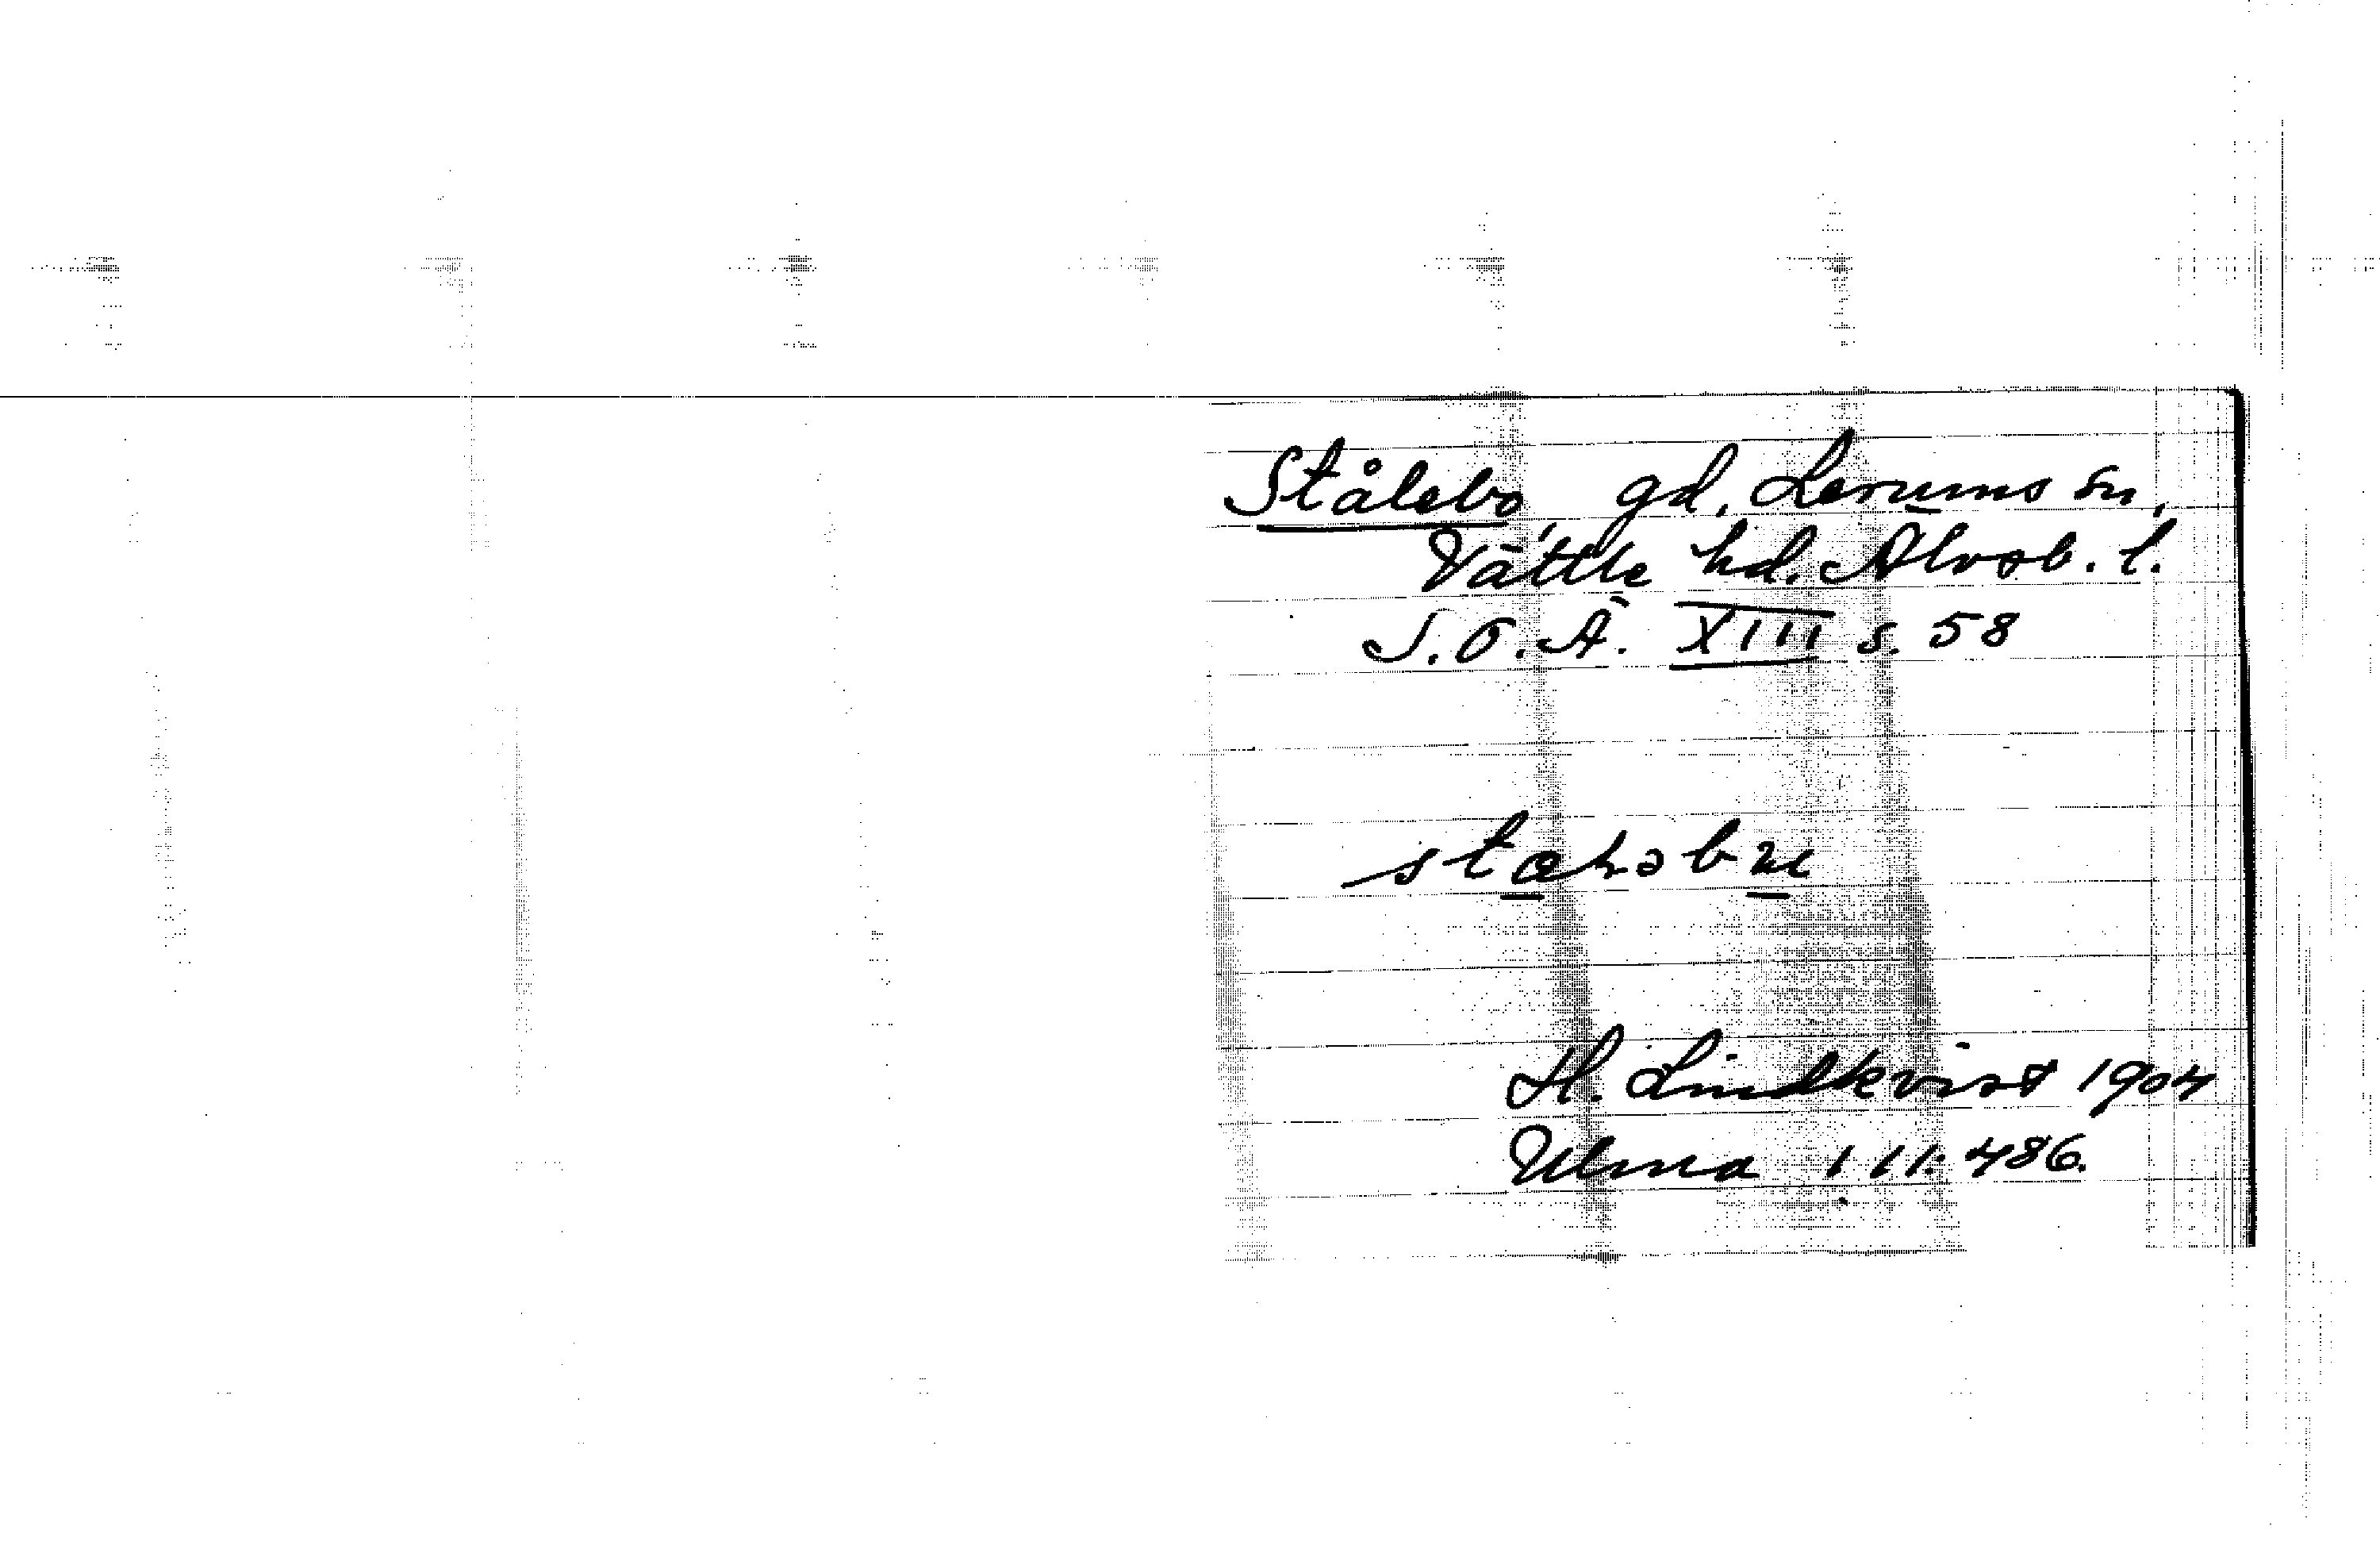 Stålebo, gd, Lerums sn,
Vättle hd. Älvsb. l.
S.O.Ä. XIII s. 58
H. Lindkvist 1904
Ulma 111:486.